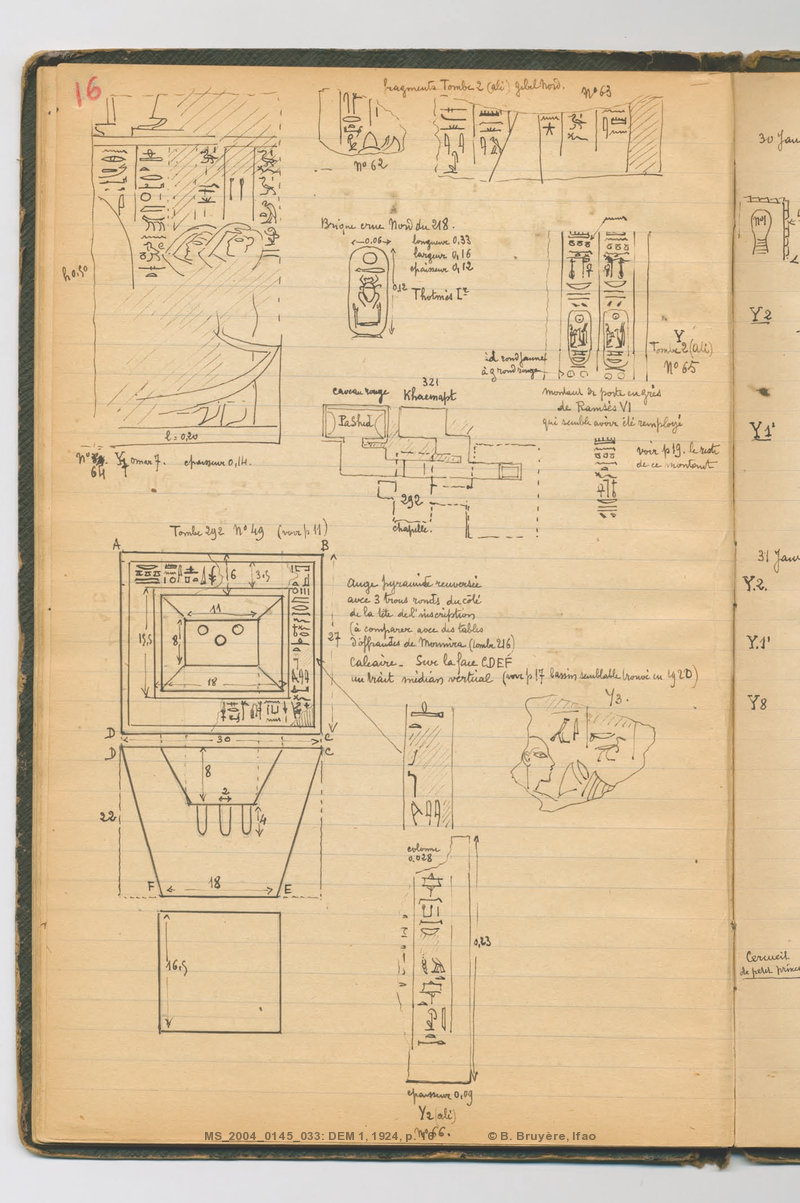 16
fragments Tombe 2 (ali) gebel Nord.
N° 63
N° 62
Brique crue Nord du 218.
0,06
longueur 0,33
largeur 0,16
epaisseur 0,12
0,12
Thotmès Ier
h 0,50
l = 0,20
N° 64
omar 7. epaisseur 0,14.
id rond jaune
à g rond rouge
Y
Tombe 2 (ali)
N° 65
montant de porte en grès
de Ramsès VI
qui semble avoir été remployé
voir p 19. le reste
de ce montant
caveau rouge
321
Khaemapt
Pashed
292
chapelle.
Tombe 292 N° 49 (voir p 11)
A
B
6
3,5
11
15,5
8
18
27
D
C
30
Auge pyramide renversée
avec 3 trous ronds du côté
de la tête de l'inscription
(à comparer avec des tables
d'offrandes de Monmira (tombe 216)
Calcaire _ Sur la face CDEF
un trait médian vertical (voir p 17 bassin semblable trouvé en 1920)
D
C
8
2
4
22
F
18
E
16,5
Y3.
colonne
0,028
0,23
epaisseur 0,09
Y2 (ali)
N° 66.
30 Jan
N°1
Y2
Y1'
31 Janv
Y.2.
Y.1'
Y8
Cercueil
de petit prince
MS_2004_0145_033: DEM 1, 1924, p. 16
© B. Bruyère, Ifao